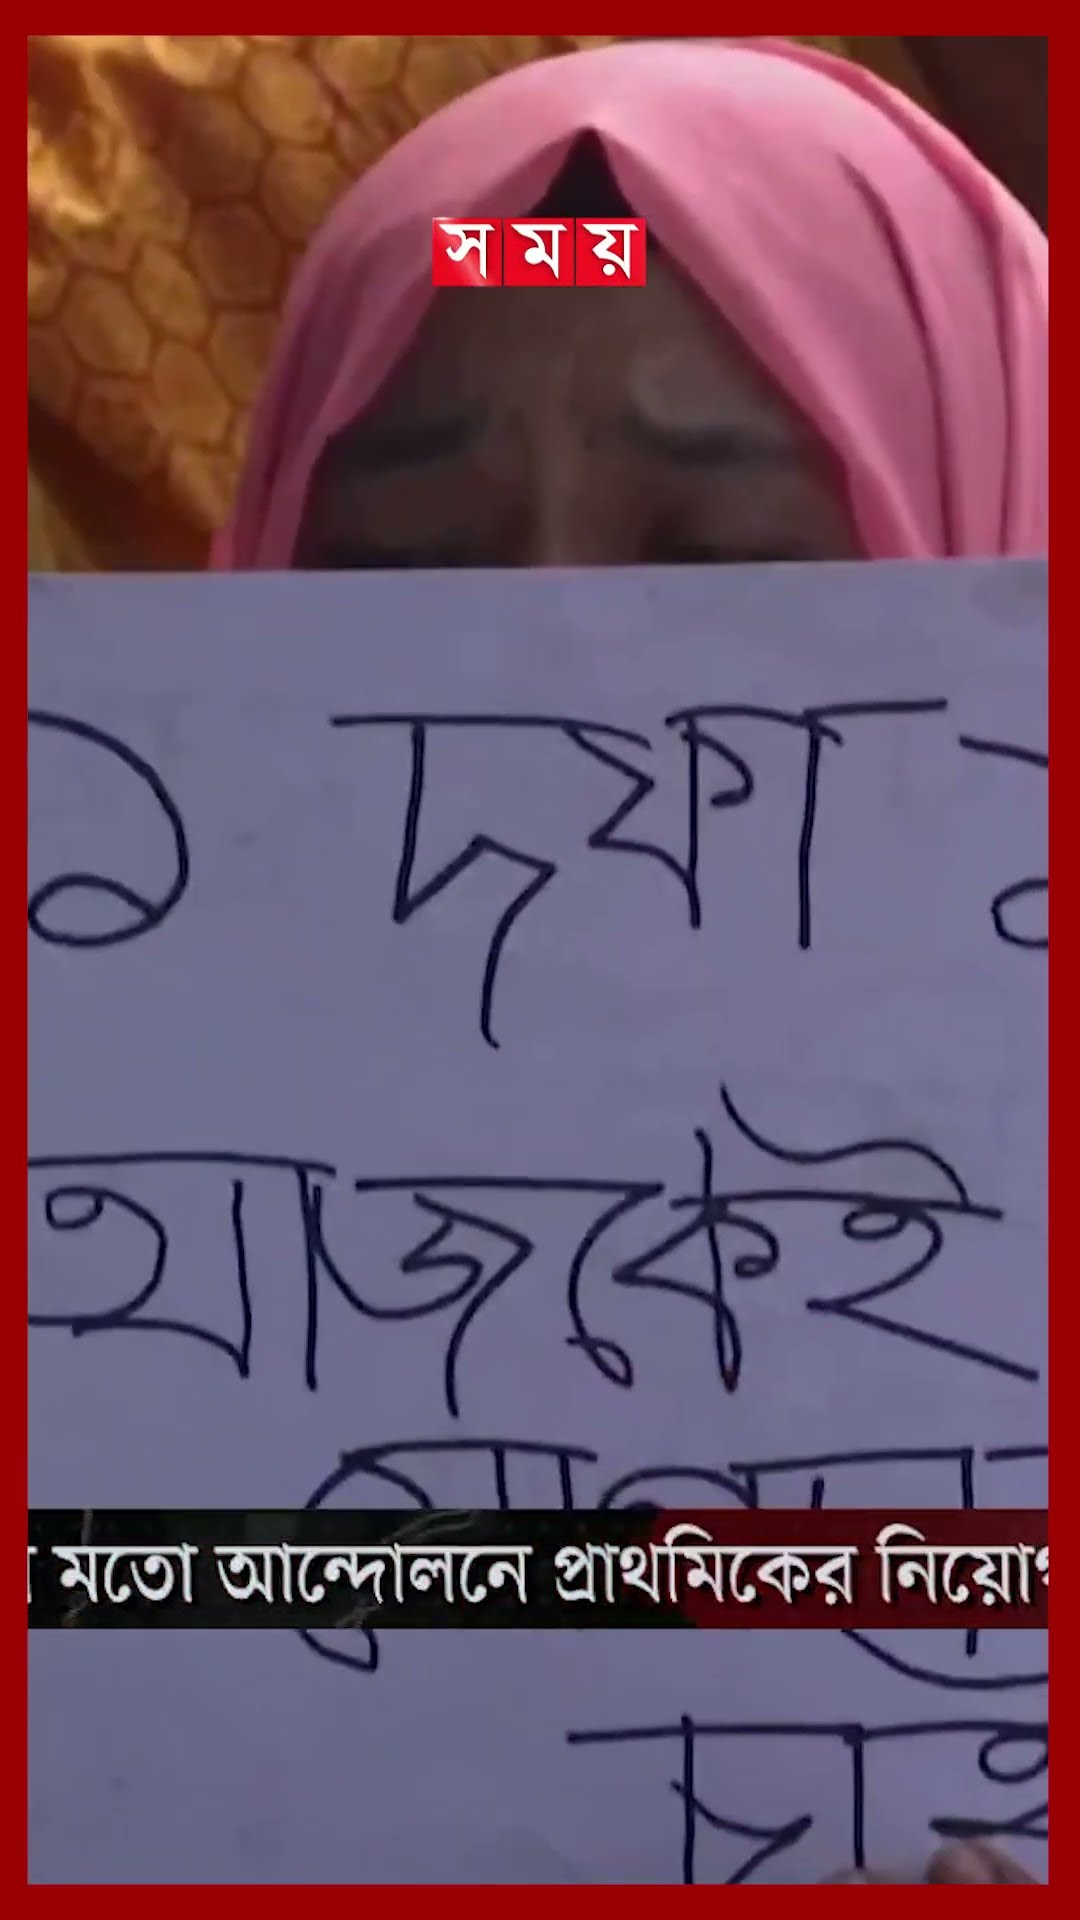 সময়
১ দফা ১
আজকেই
মতো আন্দোলনে প্রাথমিকের নিয়োগ
চাই